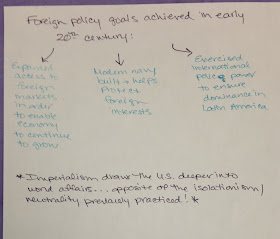 Foreign policy goals achieved in early
20th century:
Expanded
access to
foreign
markets
in order
to enable
economy
to continue
to grow
Modern navy
built & helps
protect
foreign
interests
Exercised
international
police power
to ensure
dominance in
Latin America
* Imperialism draws the U.S. deeper into
world affairs... opposite of the isolationism/
neutrality previously practiced! *